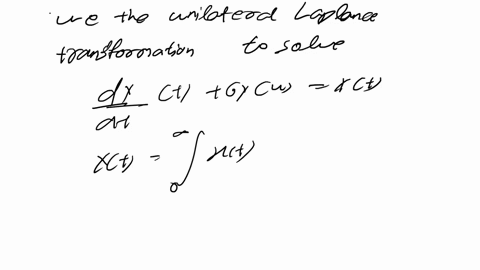 use the unilateral Laplance
transformation to solve
dy/dt (t) + 6y(u) = x(t)
X(t) = ∫₀^∞ x(t)